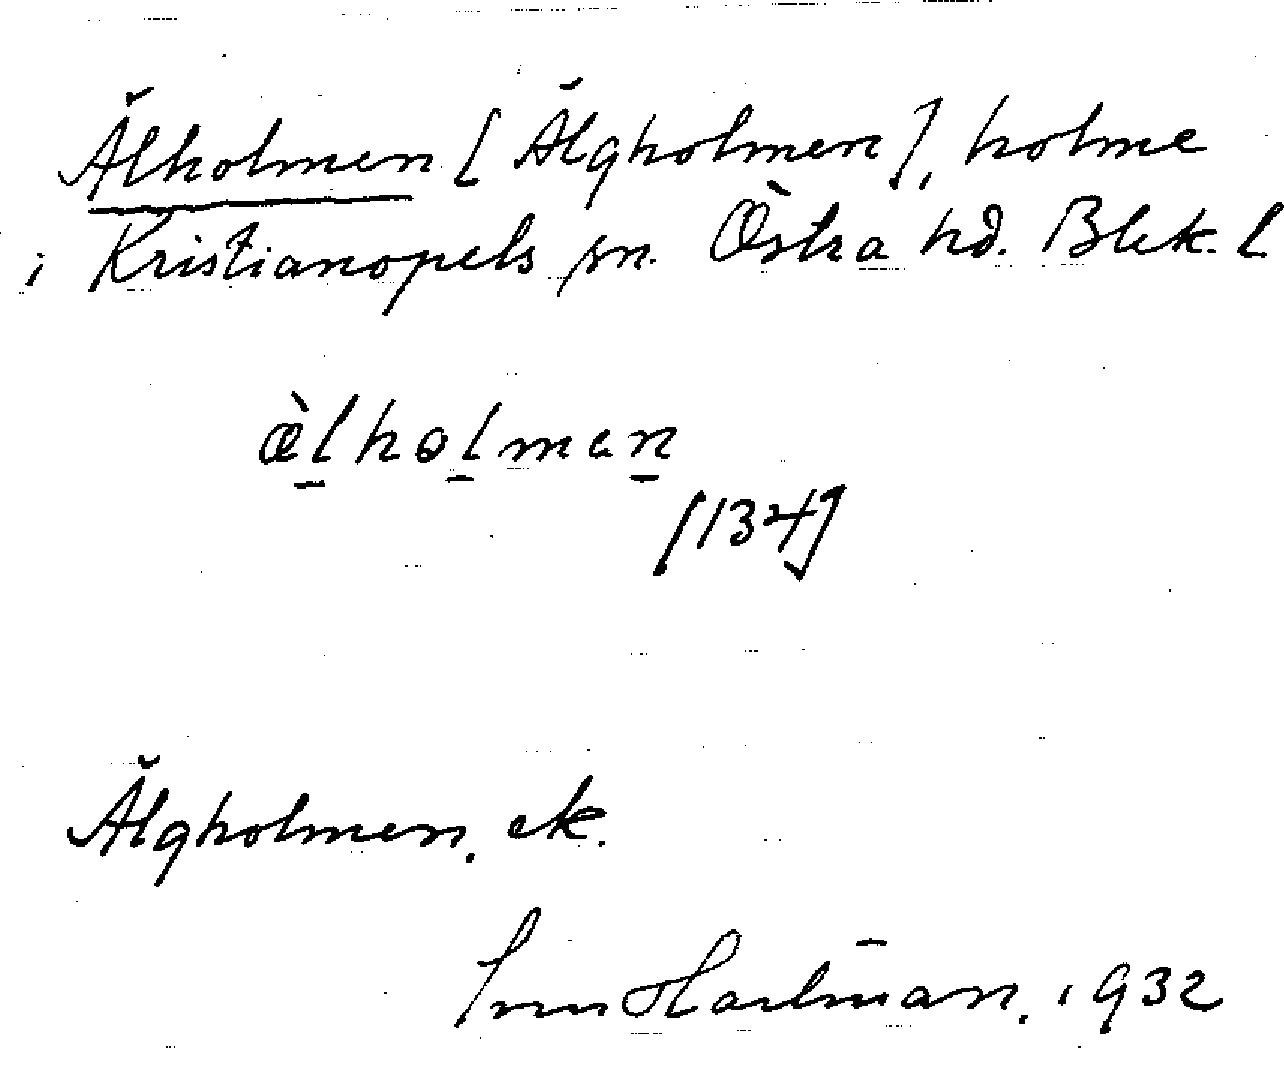 Älholmen [Älgholmen], holme
i Kristianopels sn. Östra hd. Blek. l
æ̀lholmen
[134]
Älgholmen. ek.
Hartman. 1932